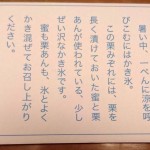 暑い中、一ぺんに涼を呼
びこむにはかき氷。
この栗みぞれには、栗を
長く漬けておいた蜜と栗
あんが使われている、少し
ぜい沢なかき氷です。
蜜も栗あんも、氷とよく
かき混ぜてお召し上がり
ください。